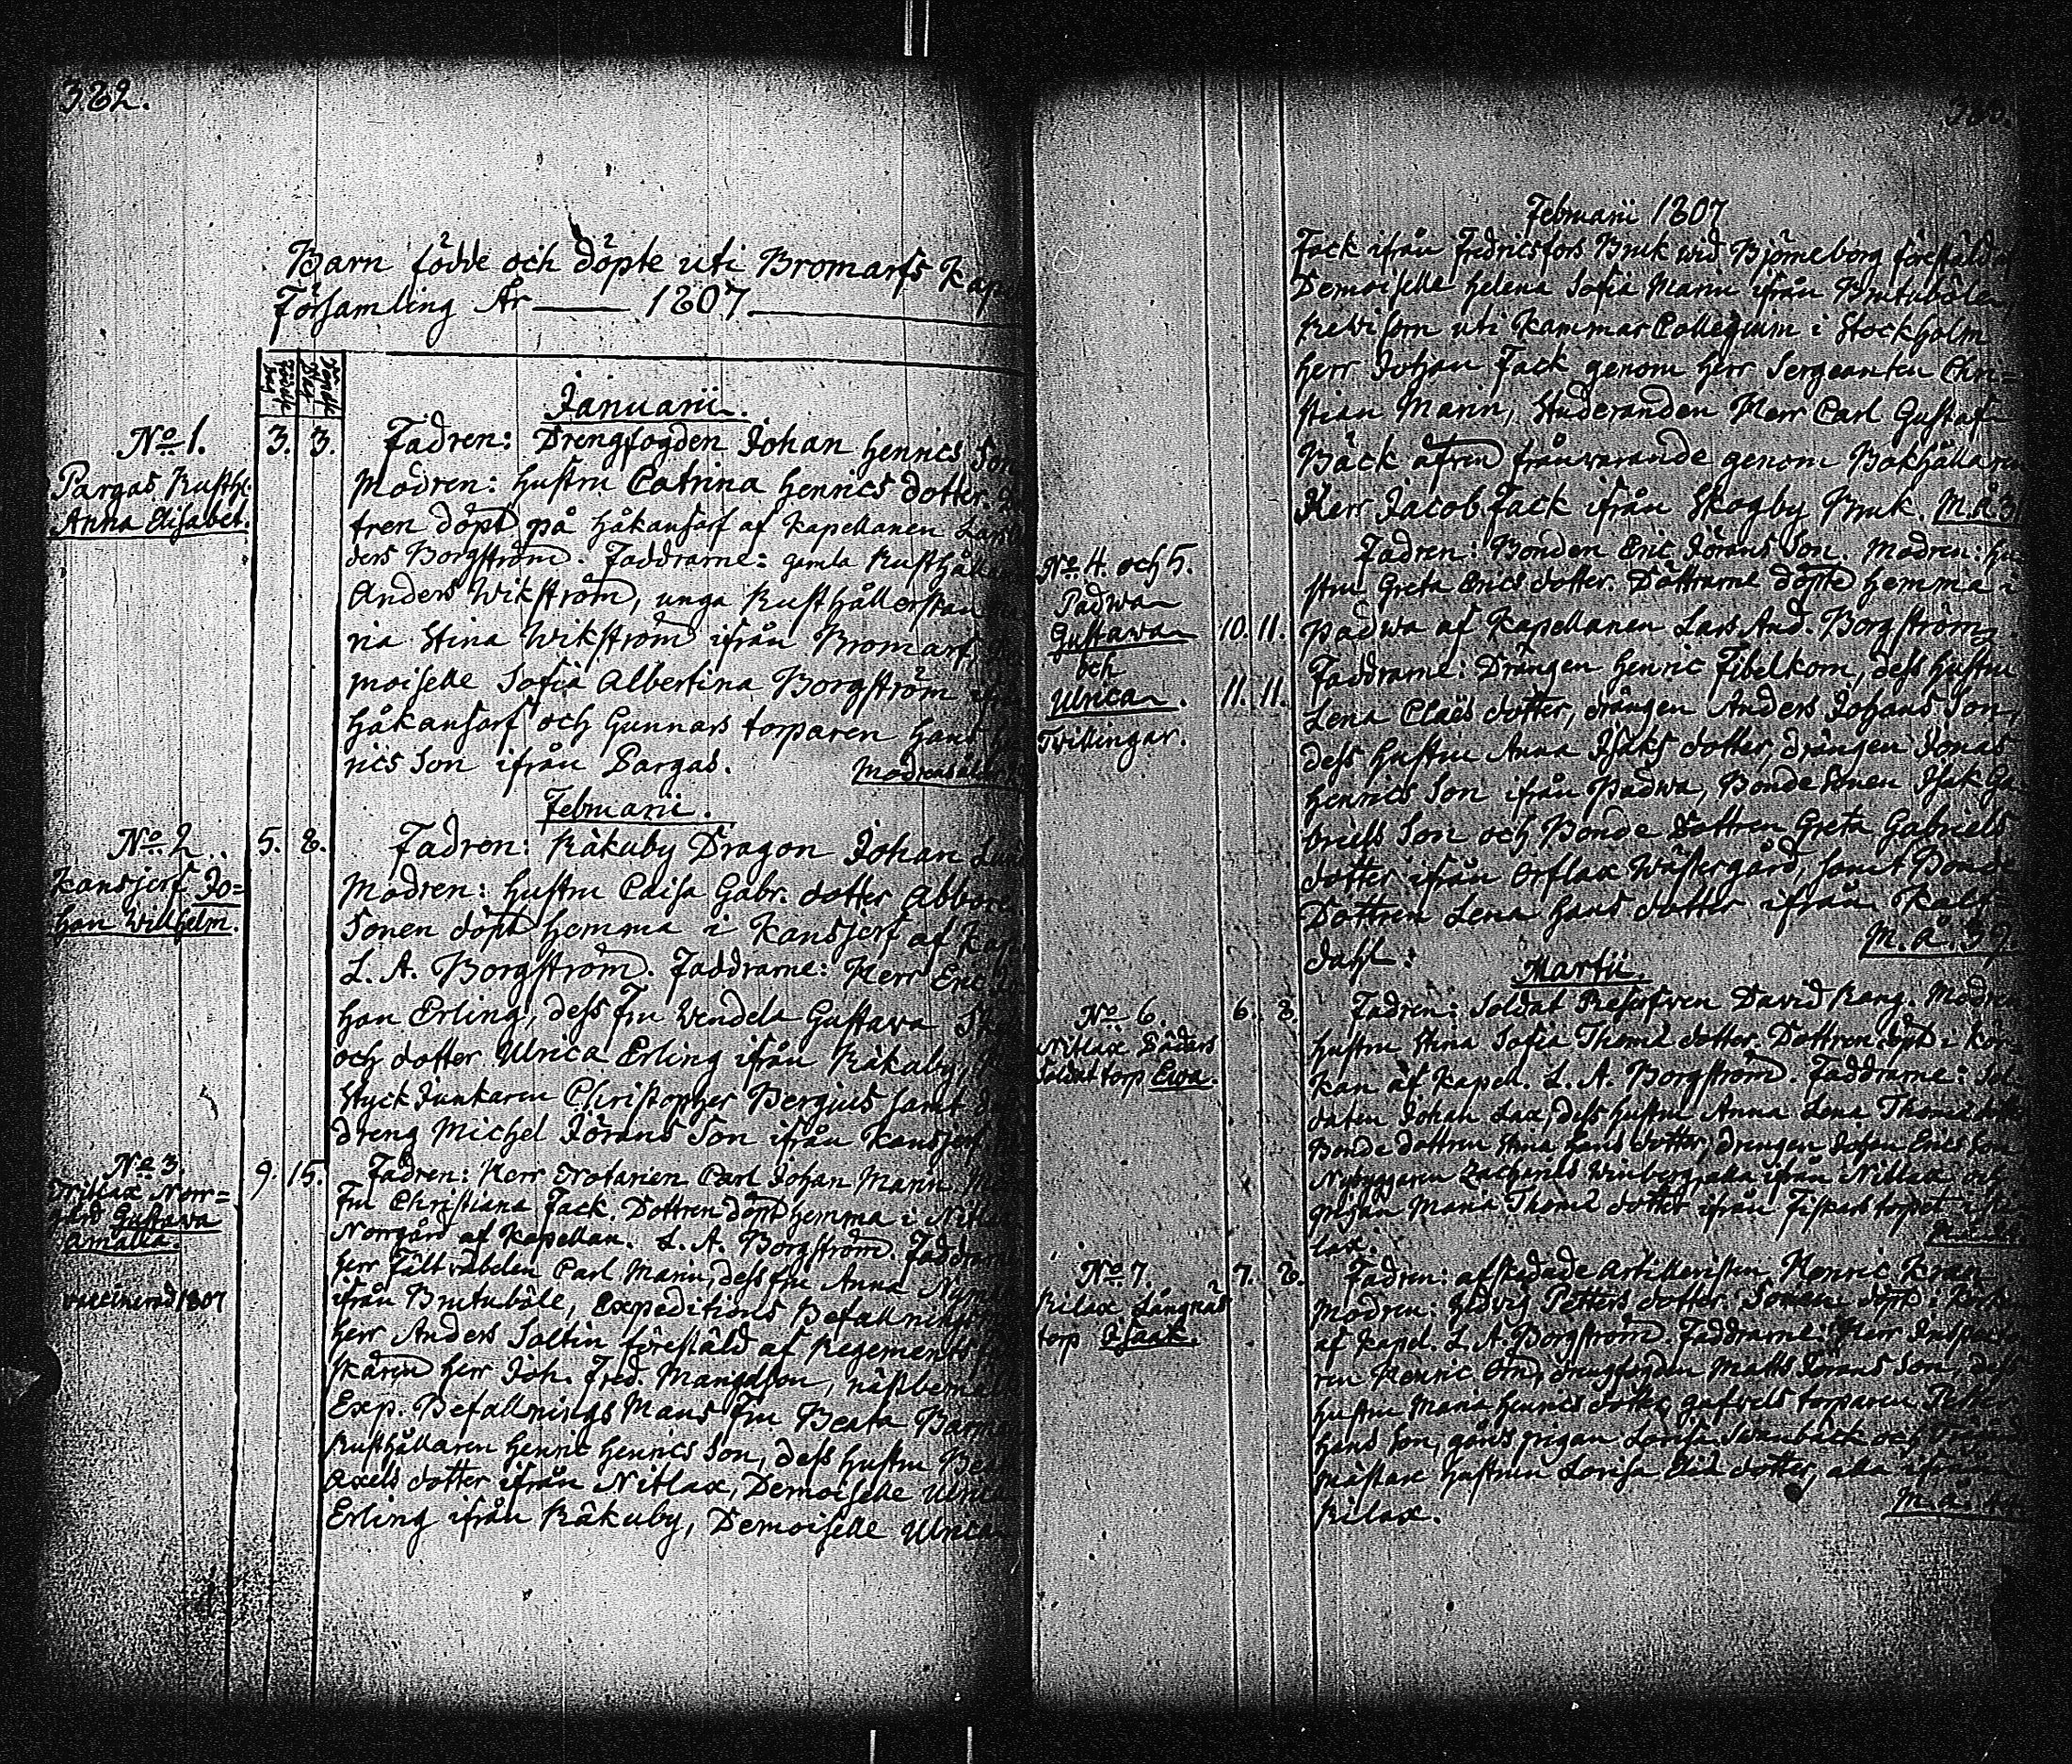 382.
Barn födde och döpte uti Bromarfs Kap
Församling År —— 1807
Födelse Dag
Januarii.
No 1.
Pargas Rusth.
Anna Elisabet.
3. 3.
Fadren: Drengfogden Johan Henrics Son
Modren: Hustru Catrina Henrics dotter.
tren döpt på Håkansarf af Kapellanen Lars
ders Borgström. Faddrarne: gamla Rusthållar
Anders Wikström, unga Rusthållerskan
ria Stina Wikström ifrån Bromarf,
moiselle Sofia Albertina Borgström
Håkansarf och Gunnars torparen Hans
rics Son ifrån Pargas. Modrens ålder
Februarii.
No 2.
Kansjerf Jo=
han Wilhelm.
5. 8.
Fadren: Råkuby Dragon Johan
Modren: Hustru Caisa Gabr. dotter
Sonen döpt hemma i Kansjerf af Kap
L. A. Borgström. Faddrarne: Herr Eric
han Erling, dess fru Wendela Gustava
och dotter Ulrica Erling ifrån Råkuby,
Styck Junkaren Christopher Bergius samt
dreng Michel Jörans Son ifrån Kansjerf
No 3.
Nitlax Norr=
gård Gustava
Amalia.
vaccinerad 1807
9. 15.
Fadren: Herr Notarien Carl Johan Marin
Fru Christiana Fack. Dottren döpt hemma i Nitlax
Norrgård af Kapellan. L. A. Borgström. Faddrarne
Herr Fältväbelen Carl Marin, dess fru Anna
ifrån Brutuböle, Expeditions Befallnings
Herr Anders Soltin föreståld af Regements
skären Herr Joh. Fred. , näst bemälte
Exp. Befallnings Mans Fru Beata
Rusthållaren Henric Henrics Son, dess hustru
Axels dotter ifrån Nitlax, Demoiselle Ulrica
Erling ifrån Råkuby, Demoiselle Ulrica
Februarii 1807
Fack ifrån Fredricsfors Bruk wid Björneborg föreståld af
Demoiselle Helena Sofia Marin ifrån Brutuböle
Revisorn uti Kammar Collegium i Stockholm
Herr Johan Fack genom Herr Sergeanten Chri=
stian Marin, Studeranden Herr Carl Gustaf
Bäck äfven frånvarande genom Bokhållaren
Herr Jacob Fack ifrån Skogby Bruk. M. å. 3
No 4. och 5.
Padwa
Gustawa
och
Ulrica.
Twillingar.
10. 11.
11. 11.
Fadren: Bonden Eric Jörans Son. Modren: Hu
stru Greta Erics dotter. Döttrarne döpte hemma i
Padwa af Kapellanen Lars And. Borgström.
Faddrarne: Drängen Henric Fibelkorn, dess hustru
Lena Claës dotter, drängen Anders Johans Son,
dess hustru Anna Isaks dotter, drängen Jonas
Henrics Son ifrån Padwa, Bonde Sonen Isak Ga
briels Son och Bonde Dottren Greta Gabriels
dotter ifrån Orslax Wästergård, samt Bonde
Dottren Lena Hans dotter ifrån Kalf
dahl. M. å. 39.
Martii.
No 6.
Nitlax
Soldat torp Ewa.
6. 8.
Fadren: Soldat Reserfven David Rang. Modren
Hustru Stina Sofia Thomæ dotter. Dottren döpt i Kör
kan af Kapell. L. A. Borgström. Faddrarne: Sol
daten Johan Lax, dess hustru Anna Lena Thomæ dotter
Bonde dottren Anna Hans dotter, drengen Johan Erics Son
Nybyggaren Zacharias Winberg, alla ifrån Nitlax och
pigan Maria Thomæ dotter ifrån Fiskars torpet i Ri
lax.
No 7.
Rilax Långnäs
torp Isaak.
7. 8.
Fadren: afskedade Artilleristen Henric Kran
Modren: Hedvig Petters dotter. Sonen döpt i Kyrkan
af Kapel. L. A. Borgström. Faddrarne: Herr Inspecto
ren Henric , drengfogden Matts Jörans Son, dess
hustru Maria Henrics dotter, torparen Petter
Hans Son, gårds pigan Lovisa Swanbäck och
mästare hustrun Lovisa dotter, alla ifrån
Rilax. M. å.